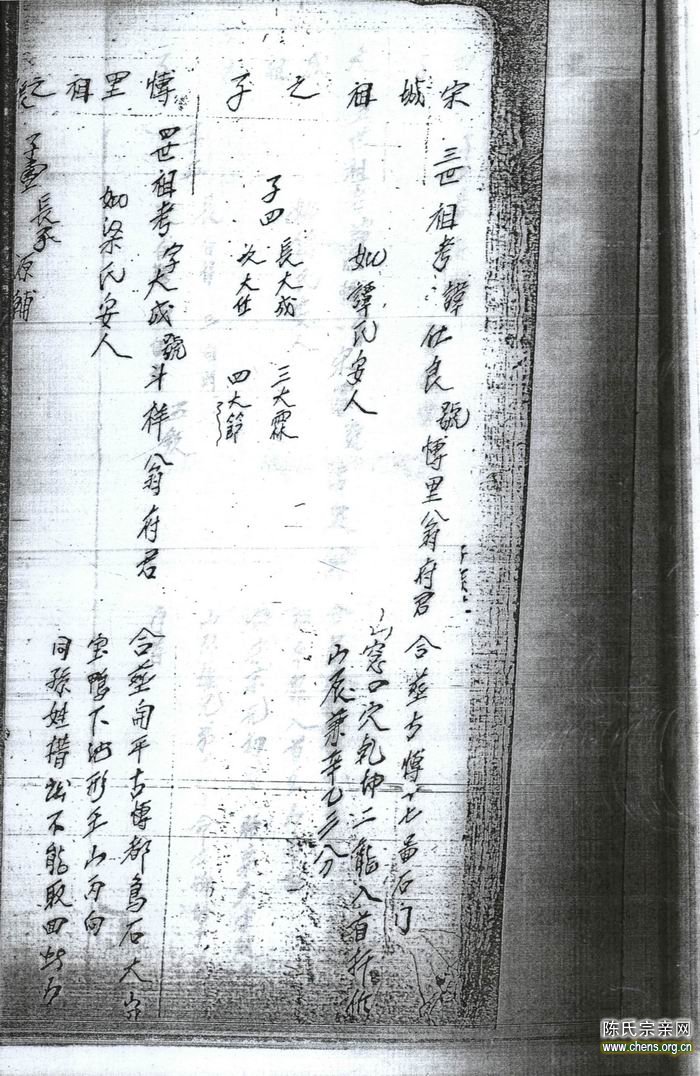 宋城祖之子
三世祖考諱仕良號愽里公翁府君
合葬古愽十七啚石门
山窓口穴乾坤二龍入首扦
山辰兼辛乙三分
妣譚氏安人
子四
長大成
三大霖
次大仕
四大節
愽里祖之
四世祖考字大成號斗祥公翁府君
合葬開平古愽都鳥石大
宝鸭下池形壬山丙向
同孫姓掯訟不能取回
妣梁氏安人
子壹
長子原輔
陈氏宗亲网
www.chens.org.cn